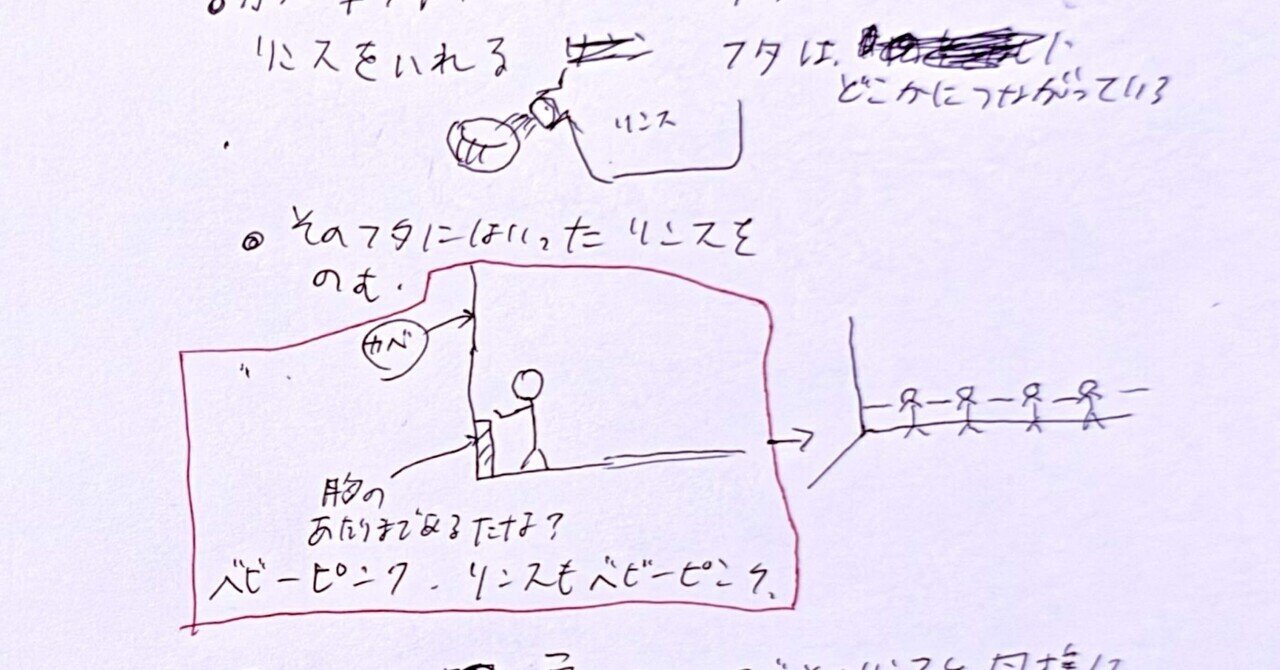 リンスをいれる
フタは、に
どこかにつながっている
リンス
◎ そのフタにはいったリンスを
のむ.
カベ
胸の
あたりまであるたな？
ベビーピンク. リンスもベビーピンク.